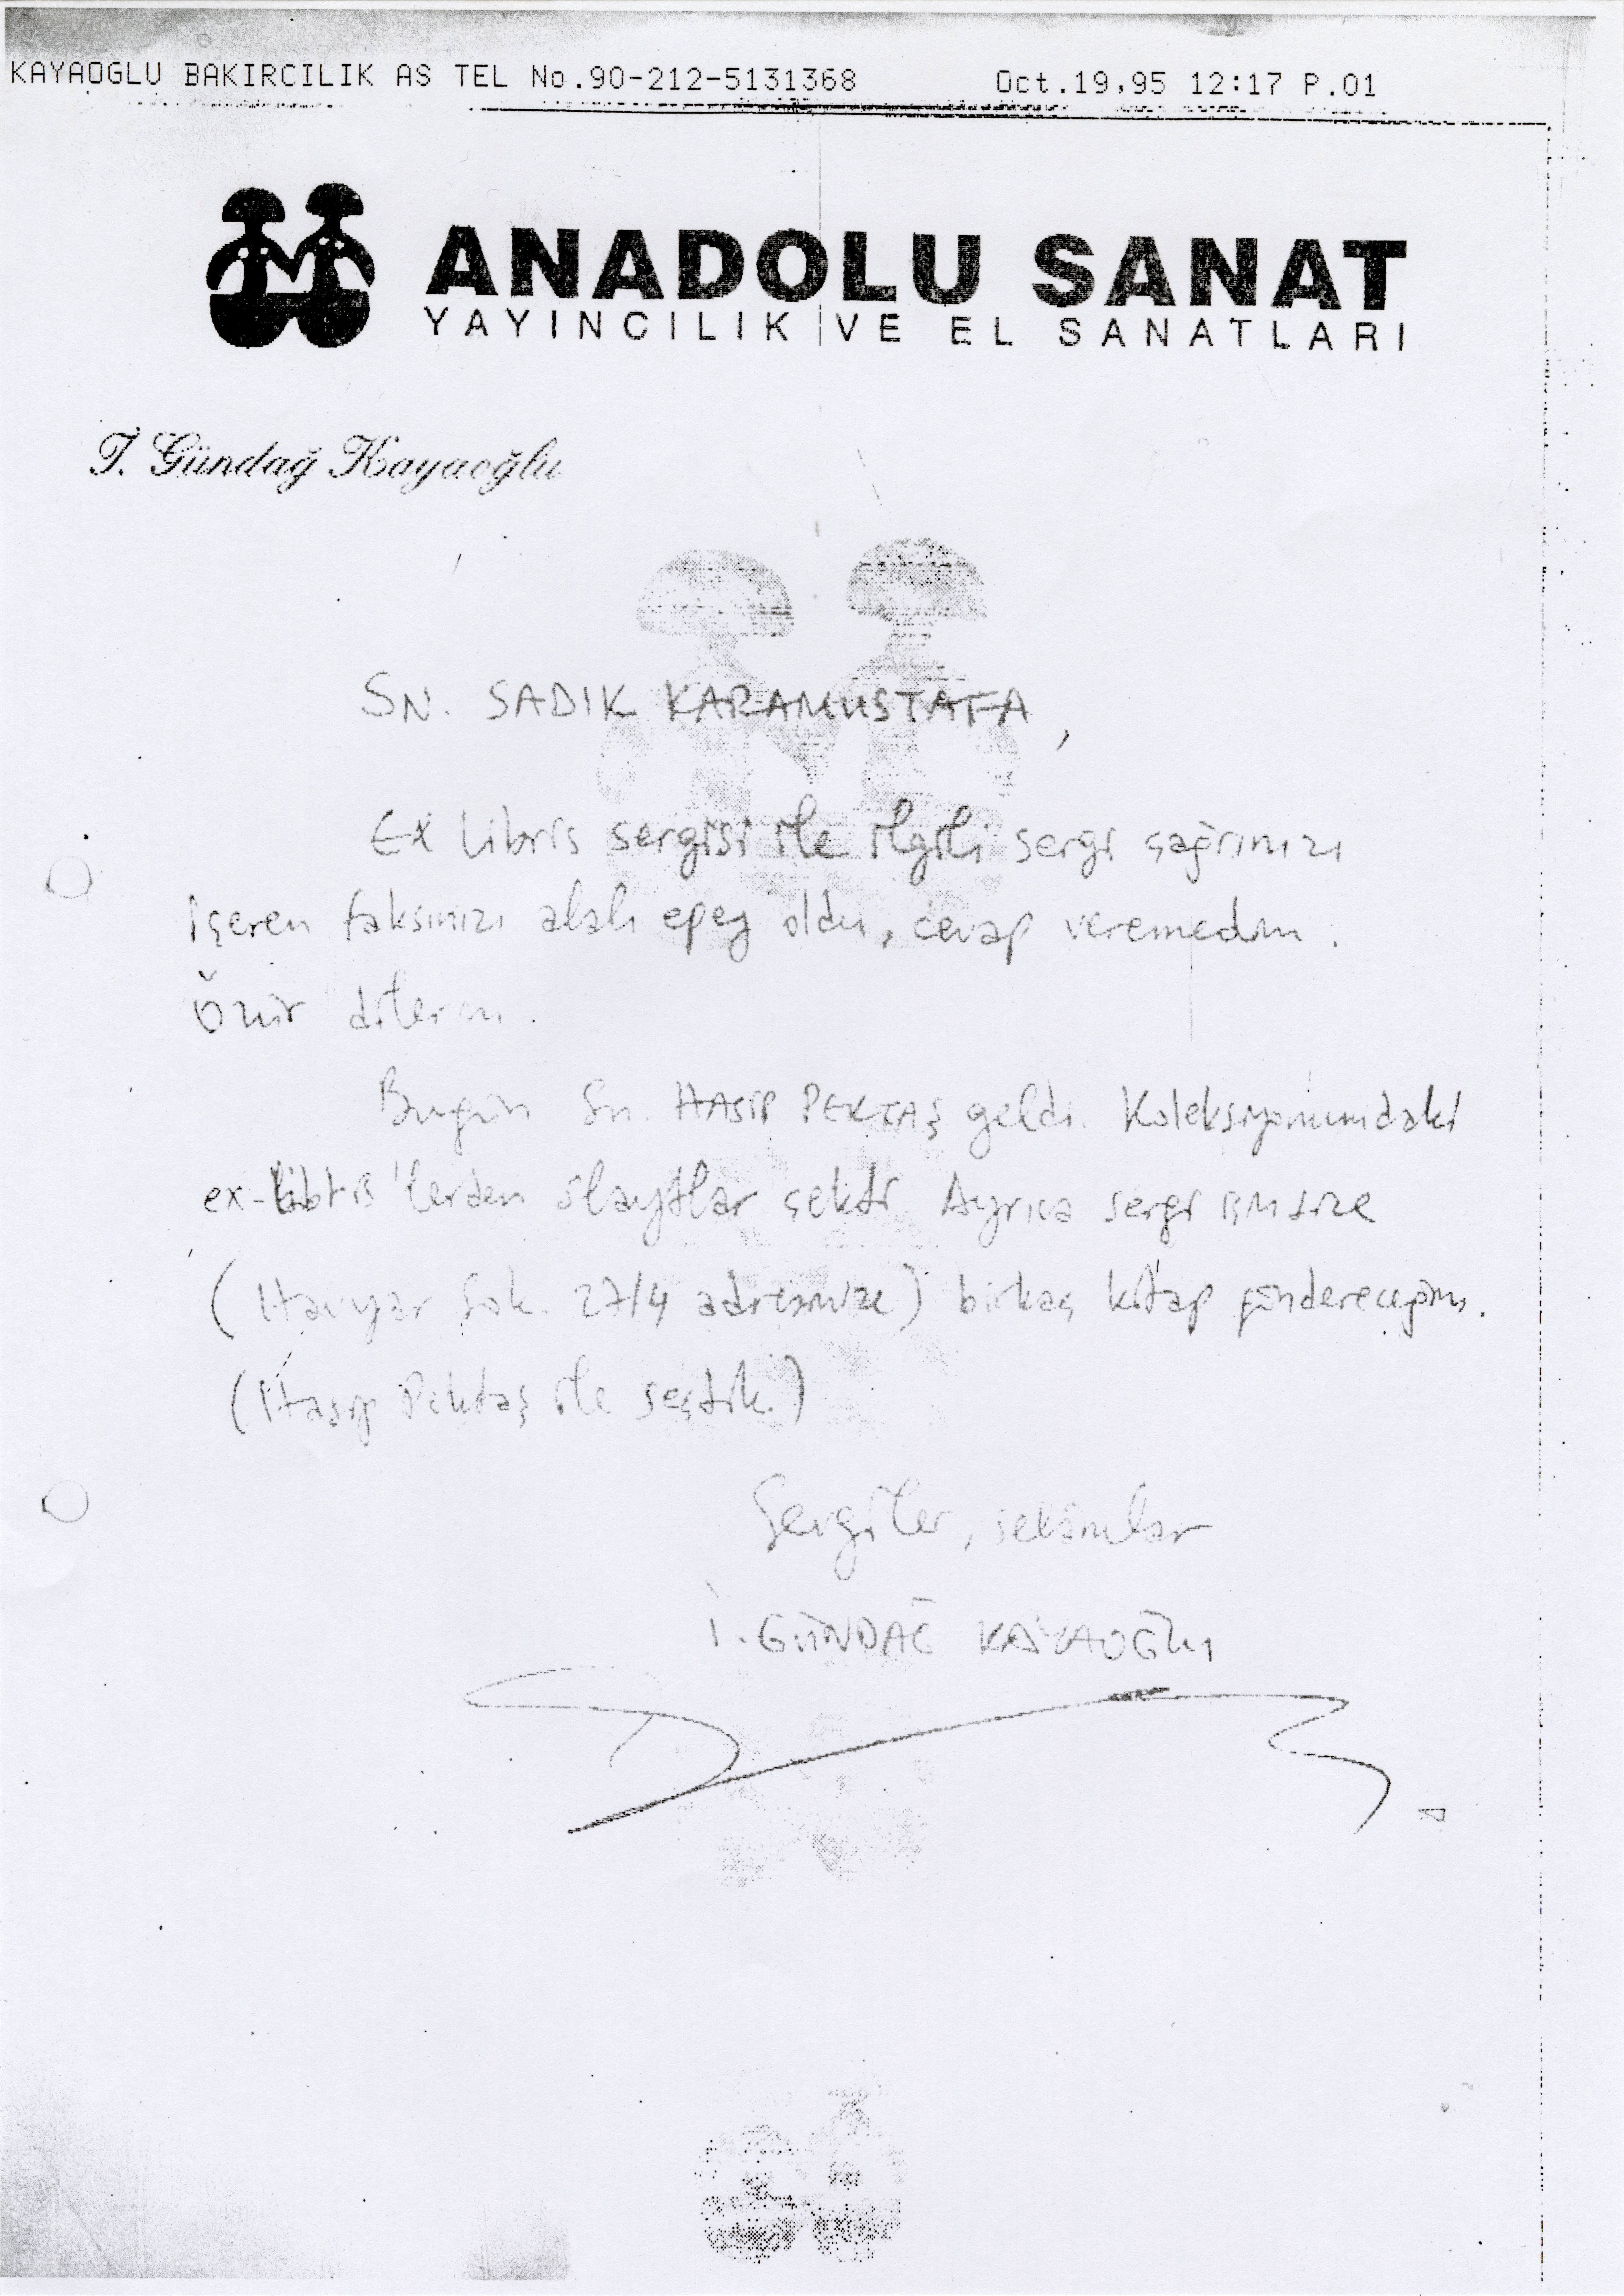 KAYAOGLU BAKIRCILIK AS TEL No.90-212-5131368 Oct.19,95 12:17 P.01
ANADOLU SANAT
YAYINCILIK VE EL SANATLARI
İ. Gündağ Kayaoğlu
SN. SADIK KARAMUSTAFA,
Ex Libris sergisi ile ilgili sergi çağrınızı
içeren faksınızı alalı epey oldu, cevap veremedim.
Özür dilerim.
Bugün Sn. HASİP PEKTAŞ geldi. Koleksiyonumdaki
ex-libris'lerden slaytlar çekti. Ayrıca sergi için size
(Havyar Sok. 27/4 adresinize) birkaç kitap göndereceğim.
(Hasip Pektaş ile seçtik.)
Sevgiler, selamlar
İ. GÜNDAĞ KAYAOĞLU